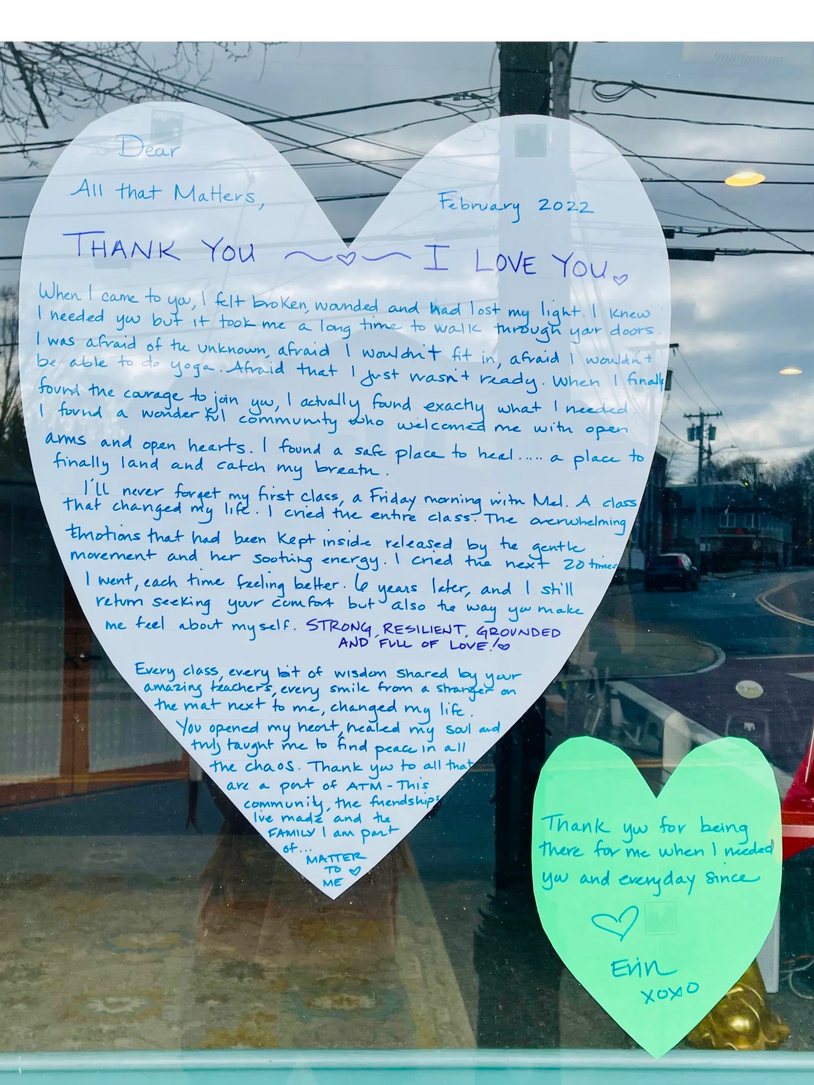 Dear
All that Matters,
February 2022
THANK YOU ~♡~ I LOVE YOU ♡
When I came to you, I felt broken, wounded and had lost my light. I knew
I needed you but it took me a long time to walk through your doors.
I was afraid of the unknown, afraid I wouldn't fit in, afraid I wouldn't
be able to do yoga. Afraid that I just wasn't ready. When I finally
found the courage to join you, I actually found exactly what I needed.
I found a wonderful community who welcomed me with open
arms and open hearts. I found a safe place to heal..... a place to
finally land and catch my breath.
I'll never forget my first class, a Friday morning with Mel. A class
that changed my life. I cried the entire class. The overwhelming
Emotions that had been kept inside released by the gentle
movement and her soothing energy. I cried the next 20 times
I went, each time feeling better. 6 years later, and I still
return seeking your comfort but also the way you make
me feel about myself. STRONG, RESILIENT, GROUNDED
AND FULL OF LOVE! ♡
Every class, every bit of wisdom shared by your
amazing teachers, every smile from a stranger on
the mat next to me, changed my life.
You opened my heart, healed my soul and
truly taught me to find peace in all
the chaos. Thank you to all that
are a part of ATM - This
community, the friendships
I've made and the
FAMILY I am part
of...
MATTER
TO ♡
ME
Thank you for being
there for me when I needed
you and everyday since
♡
Erin
xoxo